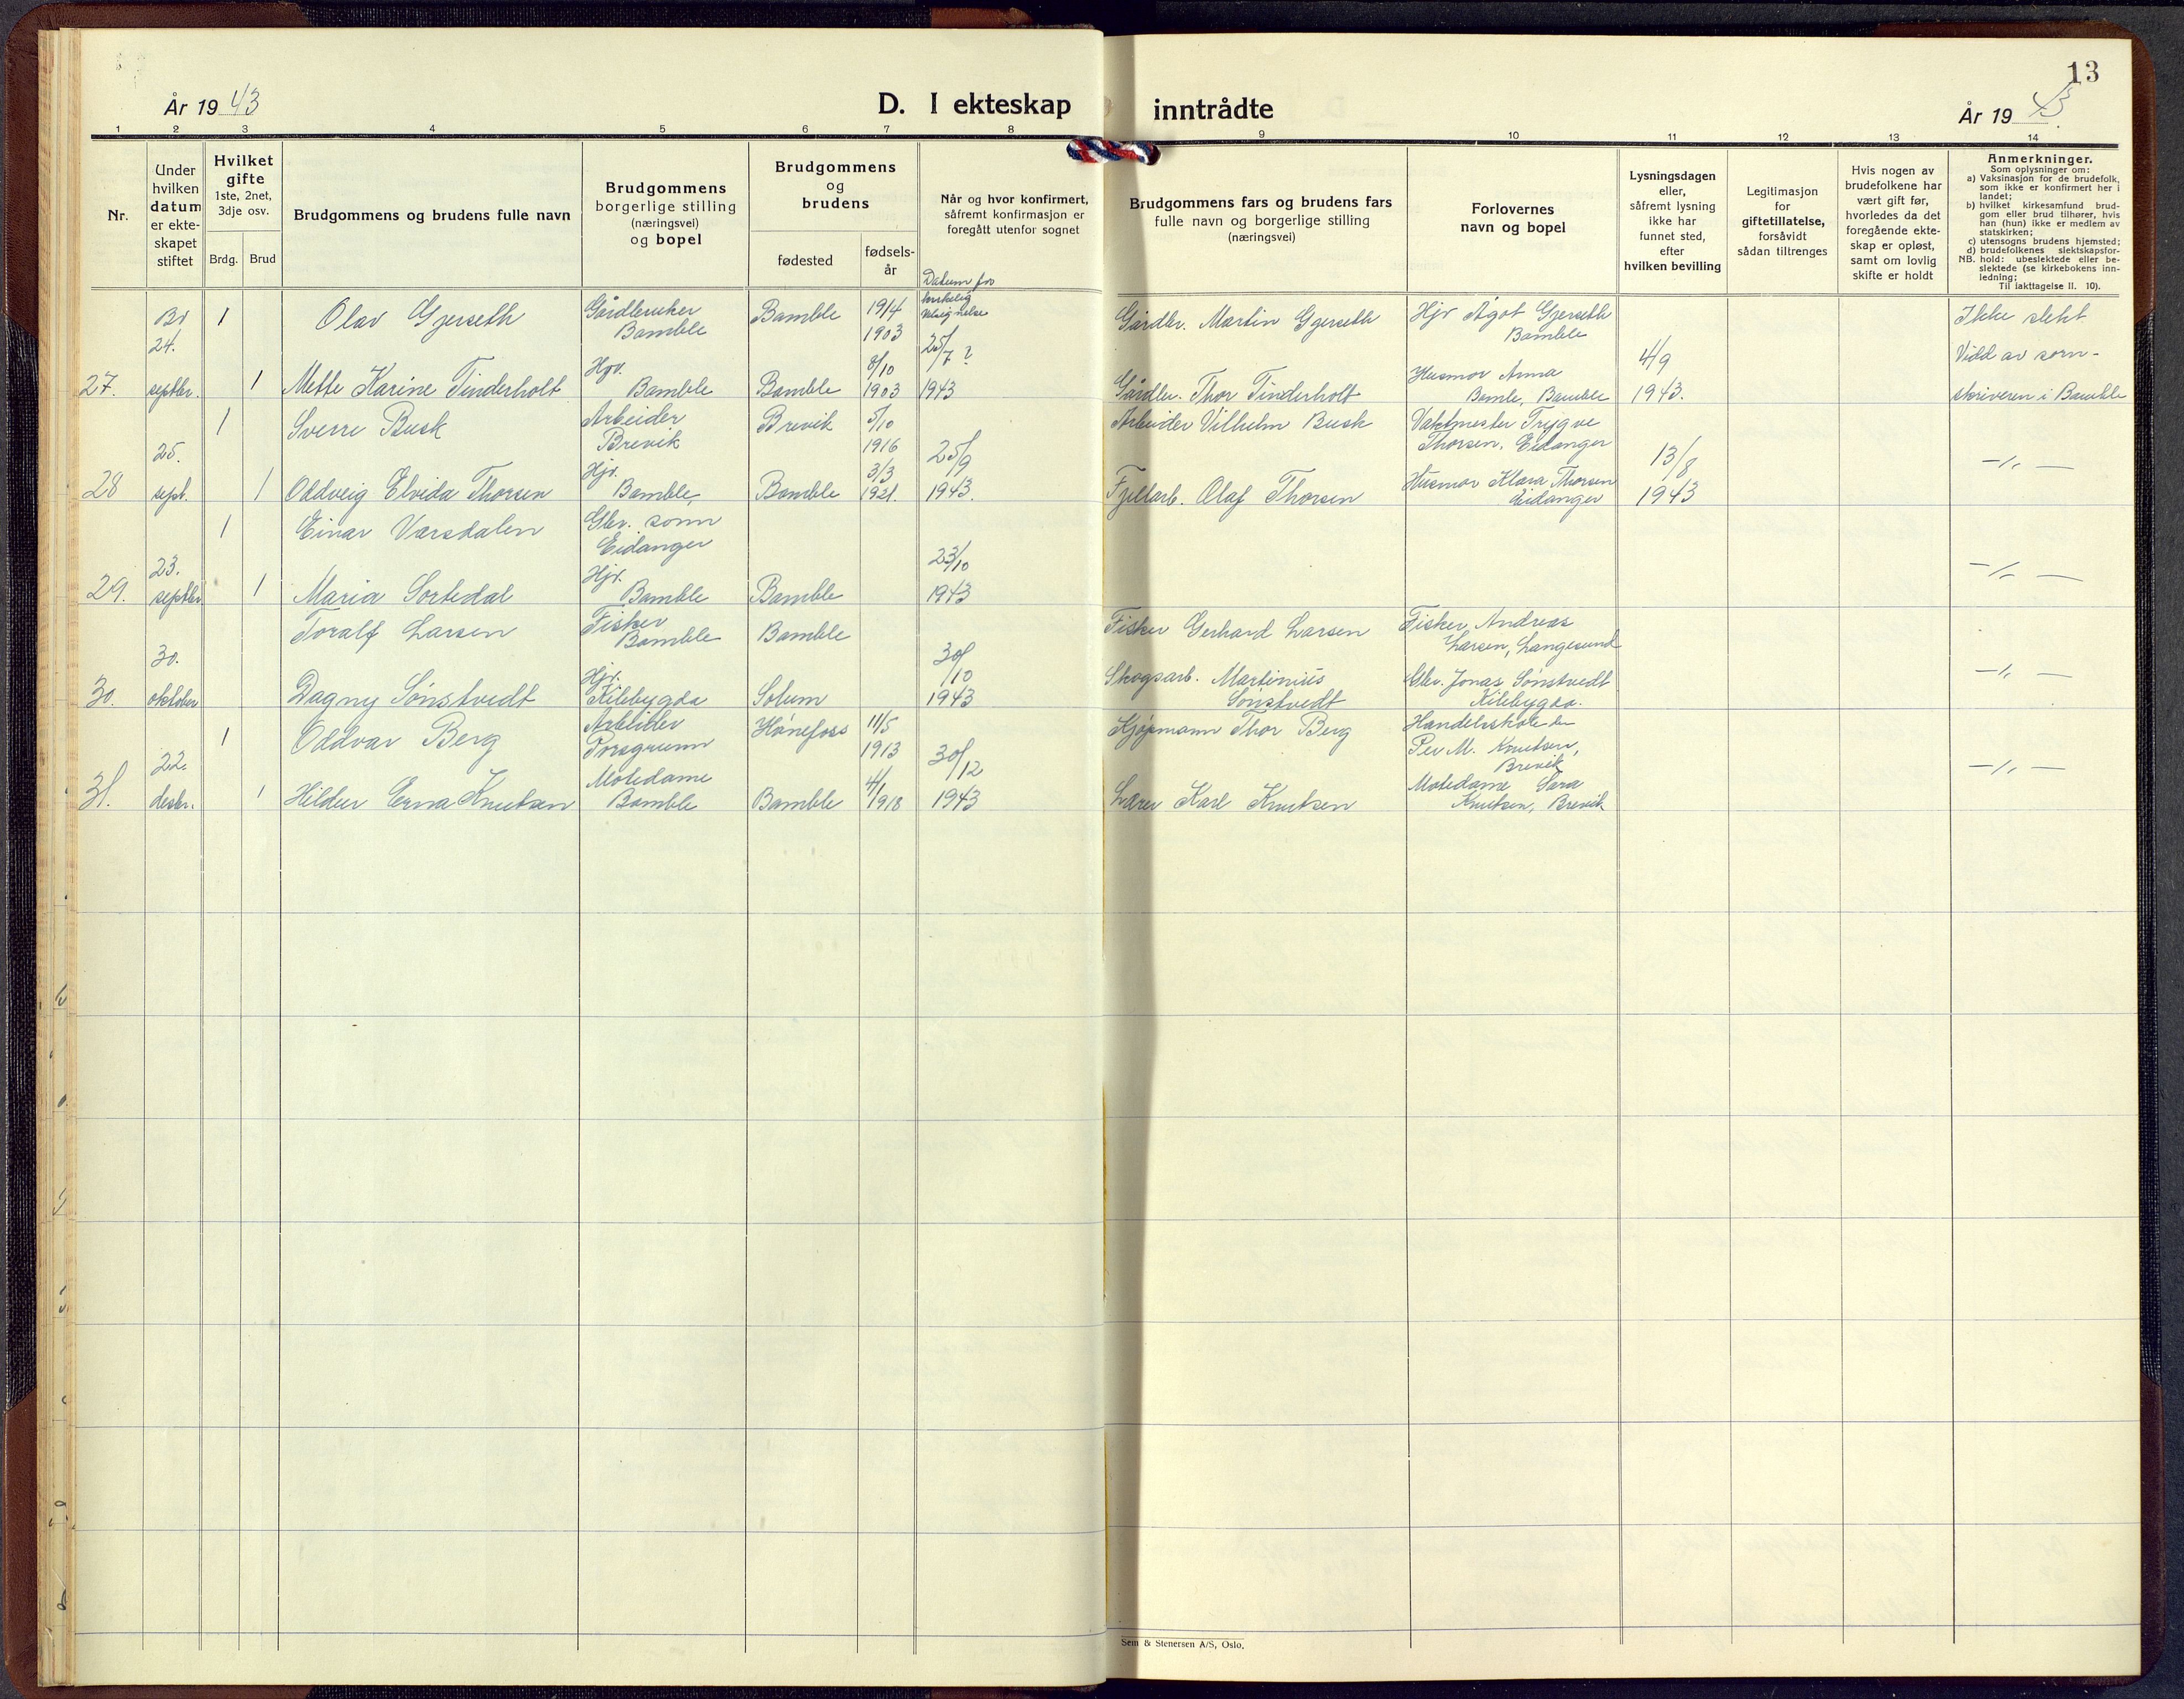 13
År 1943
D. I ekteskap inntrådte
År 1943.
1 2 3 4 5 6 7 8 9 10 11 12 13 14
Nr.
Under
hvilken
datum
er ekte-
skapet
stiftet
Hvilket
gifte
1ste, 2net,
3dje osv.
Brdg. Brud
Brudgommens og brudens fulle navn
Brudgommens
borgerlige stilling
(næringsvei)
og bopel
Brudgommens
og
brudens
fødested
fødsels-
år
Når og hvor konfirmert,
såfremt konfirmasjon er
foregått utenfor sognet
Datum for
kirkelig
velsignelse
Brudgommens fars og brudens fars
fulle navn og borgerlige stilling
(næringsvei)
Forlovernes
navn og bopel
Lysningsdagen
eller,
såfremt lysning
ikke har
funnet sted,
efter
hvilken bevilling
Legitimasjon
for
giftetillatelse,
forsåvidt
sådan tiltrenges
Hvis nogen av
brudefolkene har
vært gift før,
hvorledes da det
foregående ekte-
skap er opløst,
samt om lovlig
skifte er holdt
Anmerkninger.
Som oplysninger om:
a) Vaksinasjon for de brudefolk,
som ikke er konfirmert her i
landet;
b) hvilket kirkesamfund brud-
gom eller brud tilhører, hvis
han (hun) ikke er medlem av
statskirken;
c) utensogns brudens hjemsted;
d) brudefolkenes slektskapsfor-
NB. hold: ubeslektede eller be-
slektede (se kirkebokens inn-
ledning;
Til iakttagelse II. 10).
27.
24.
septbr.
1
Olav Gjerseth
Gårdbruker
Bamble
Bamble
19/4
1903
25/7 ?
1943
Gårdbr. Martin Gjerseth
Hjv Ågot Gjerseth
Bamble
4/9
1943.
Ikke slekt
Vidd av sorn-
skriveren i Bamble
1
Mette Karine Tinderholt
Hjv.
Bamble
Bamble
8/10
1903
Gårdbr. Thor Tinderholt
Husmor Anna
Bamle, Bamble
28
25.
sept.
1
Sverre Busk
Arbeider
Brevik
Brevik
5/10
1916
25/9
1943.
Arbeider Vilhelm Busk
Vaktmester Trygve
Thorsen, Eidanger
13/8
1943
—〃—
1
Oddveig Elvida Thorsen
Hjv.
Bamble
Bamble
3/3
1921.
Fjellarb. Olaf Thorsen
Husmor Klara Thorsen
Eidanger
29.
23.
septbr
1
Einar Versdalen
Gbr. sønn
Eidanger
23/10
1943
—〃—
1
Maria Sortedal
Hjv.
Bamble
Bamble
30.
30.
oktober
Toralf Larsen
Fisker
Bamble
Bamble
30/10
1943
Fisker Gerhard Larsen
Fisker Andreas
Larsen, Langesund
—〃—
Dagny Sønstvedt
Hjv.
Kilebygda
Solum
Skogsarb. Martinius
Sønstvedt
Gbr. Jonas Sønstvedt
Kilebygda.
31.
22.
desbr.
1
Oddvar Berg
Arbeider
Porsgrunn
Hønefoss
11/5
1913
30/12
1943
Kjøpmann Thor Berg
Per M. Knutsen,
Brevik
—〃—
1
Hildur Erna Knutsen
Motedame
Bamble
Bamble
4/1
1918
Lærer Karl Knutsen
Motedame Sara
Knutsen, Brevik
Sem & Stenersen A/S, Oslo.